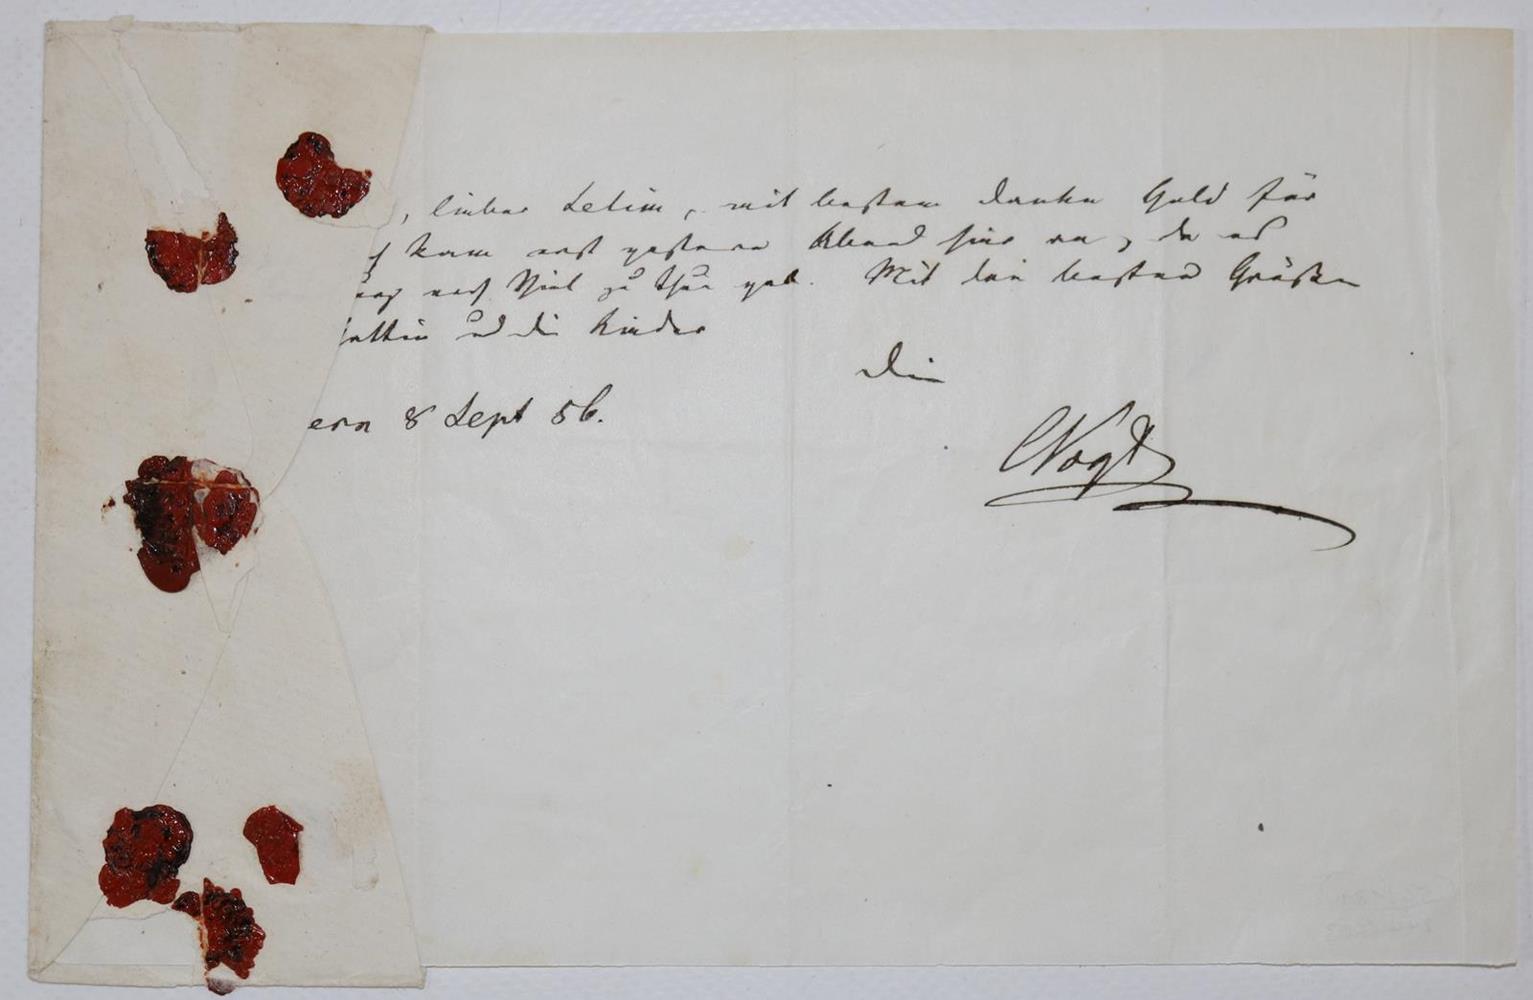 , lieber Selim, mit bestem Danke Geld für
h kam erst gestern Abend hier an, da es
noch Viel zu thun gab. Mit den besten Grüßen
Gattin und die Kinder
Dein
ern 8 Sept 56.
CVogt